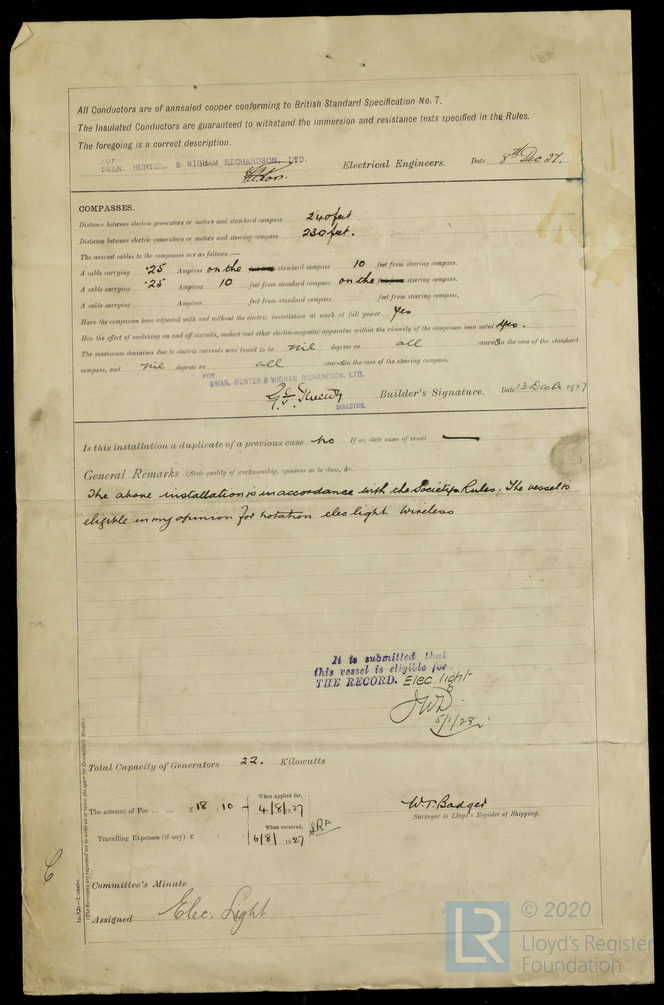 All Conductors are of annealed copper conforming to British Standard Specification No. 7.
The Insulated Conductors are guaranteed to withstand the immersion and resistance tests specified in the Rules.
The foregoing is a correct description.
FOR
SWAN, HUNTER, & WIGHAM RICHARDSON, LTD.
Electrical Engineers. Date 8th Dec 27.
COMPASSES.
Distance between electric generators or motors and standard compass 240 feet
Distance between electric generators or motors and steering compass 230 feet.
The nearest cables to the compasses are as follows:—
A cable carrying .25 Ampères on the standard compass 10 feet from steering compass.
A cable carrying .25 Ampères 10 feet from standard compass on the steering compass.
A cable carrying Ampères feet from standard compass feet from steering compass.
Have the compasses been adjusted with and without the electric installation at work at full power yes
Has the effect of switching on and off circuits, motors and other electro-magnetic apparatus within the vicinity of the compasses been noted yes.
The maximum deviation due to electric currents was found to be nil degrees on all courses in the case of the standard
compass, and nil degrees on all courses in the case of the steering compass.
FOR
SWAN, HUNTER & WIGHAM RICHARDSON, LTD.
DIRECTOR.
Builder's Signature. Date 13 Decbr 1927
Is this installation a duplicate of a previous case no If so, state name of vessel —
General Remarks (State quality of workmanship, opinions as to class, &c.
The above installation is in accordance with the Society's Rules. The vessel is
eligible in my opinion for notation elec light wireless
It is submitted that
this vessel is eligible for
THE RECORD. Elec. light.
JWD.
5/1/28
Total Capacity of Generators 22. Kilowatts
The amount of Fee ... ... £ 18 : 10 -
When applied for,
4/8/1927
Travelling Expenses (if any) £ :
When received,
6/8/1927
W.T. Badger
Surveyor to Lloyd's Register of Shipping.
Committee's Minute
Assigned Elec. Light
(The Surveyors are requested not to write on or below the space for Committee's Minute.)
LR
© 2020
Lloyd's Register
Foundation